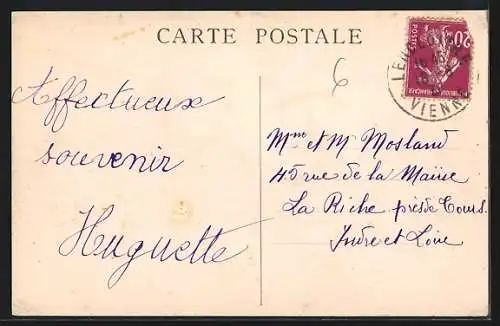 CARTE POSTALE
20
POSTES
FRANÇAISE
VIENNE
6
Affectueux
souvenir
Huguette
Mme et M Mosland
45 rue de la Mairie
La Riche près de Tours
Indre et Loire